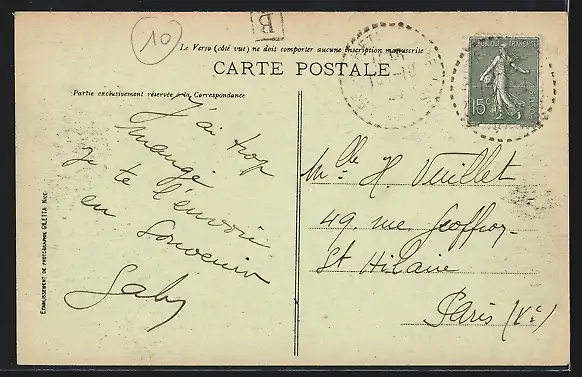 10
B
Le Verso (côté vue) ne doit comporter aucune inscription manuscrite
CARTE POSTALE
Partie exclusivement réservée à la Correspondance
REPUBLIQUE FRANÇAISE
15c
J'ai trop
mangé
je te l'envoie
en souvenir
Gaby
Mlle H. Vuillet
49, rue Geoffroy
St Hilaire
Paris (Ve)
ETABLISSEMENT DE PHOTOGRAPHIE GILETTA NICE